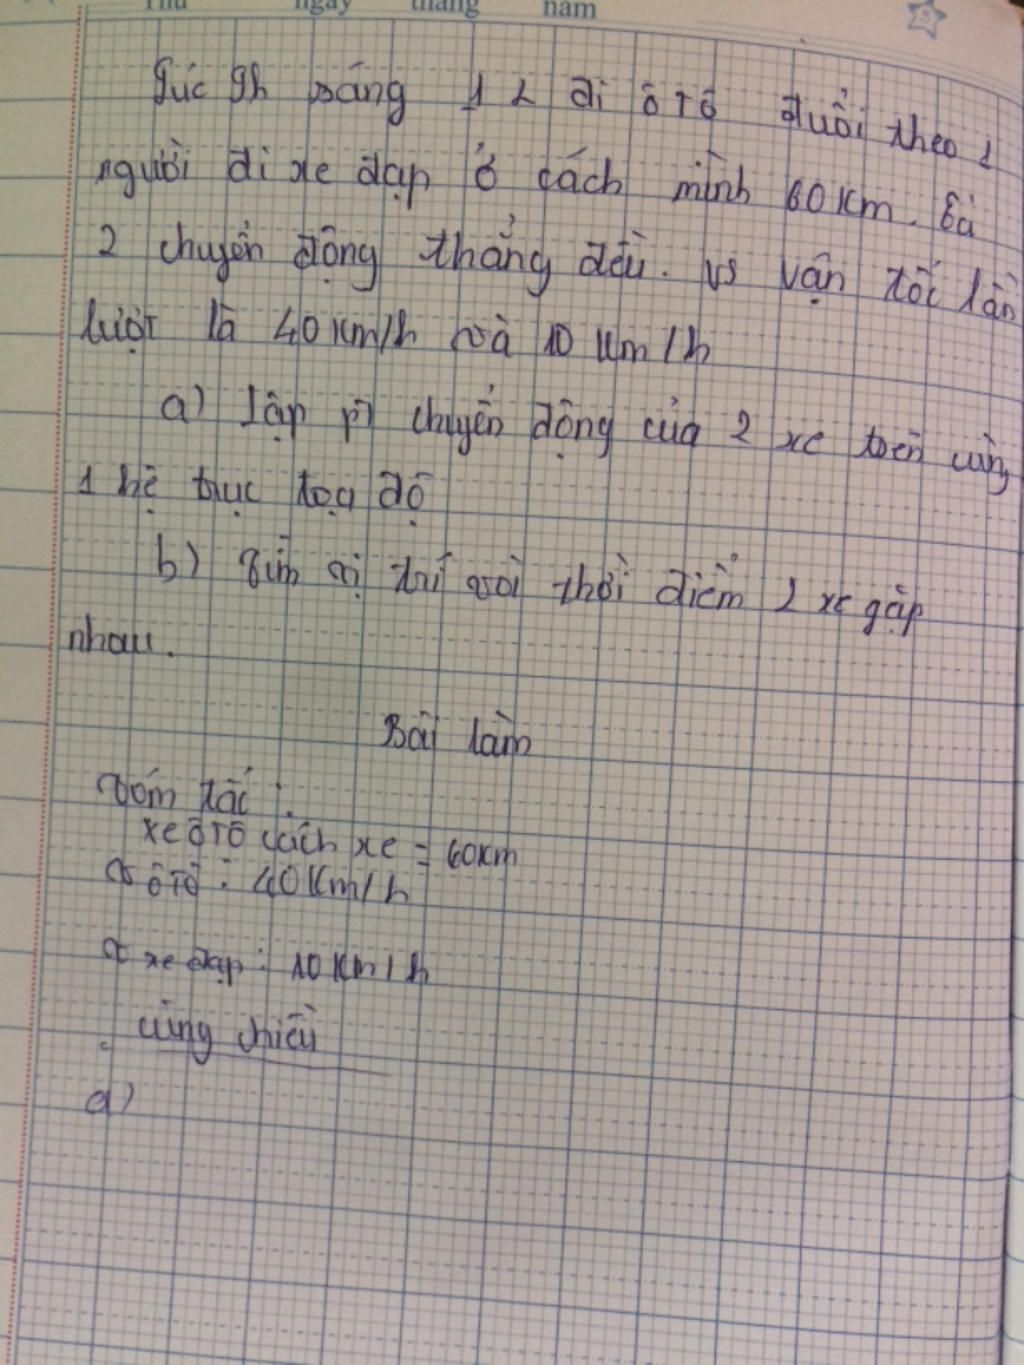 Thứ ngày tháng năm
Lúc 9h sáng 1 đi ô tô đuổi theo 1
người đi xe đạp ở cách mình 60 Km. Cả
2 chuyển động thẳng đều. vs vận tốc lần
lượt là 40 Km/h và 10 Km/h
a) lập pt chuyển động của 2 xe trên cùng
1 hệ trục tọa độ
b) Tìm vị trí và thời điểm 2 xe gặp
nhau.
Bài làm
Tóm tắt:
xe ô tô cách xe = 60km
v ô tô: 40 Km/h
v xe đạp: 10 Km/h
cùng chiều
a)